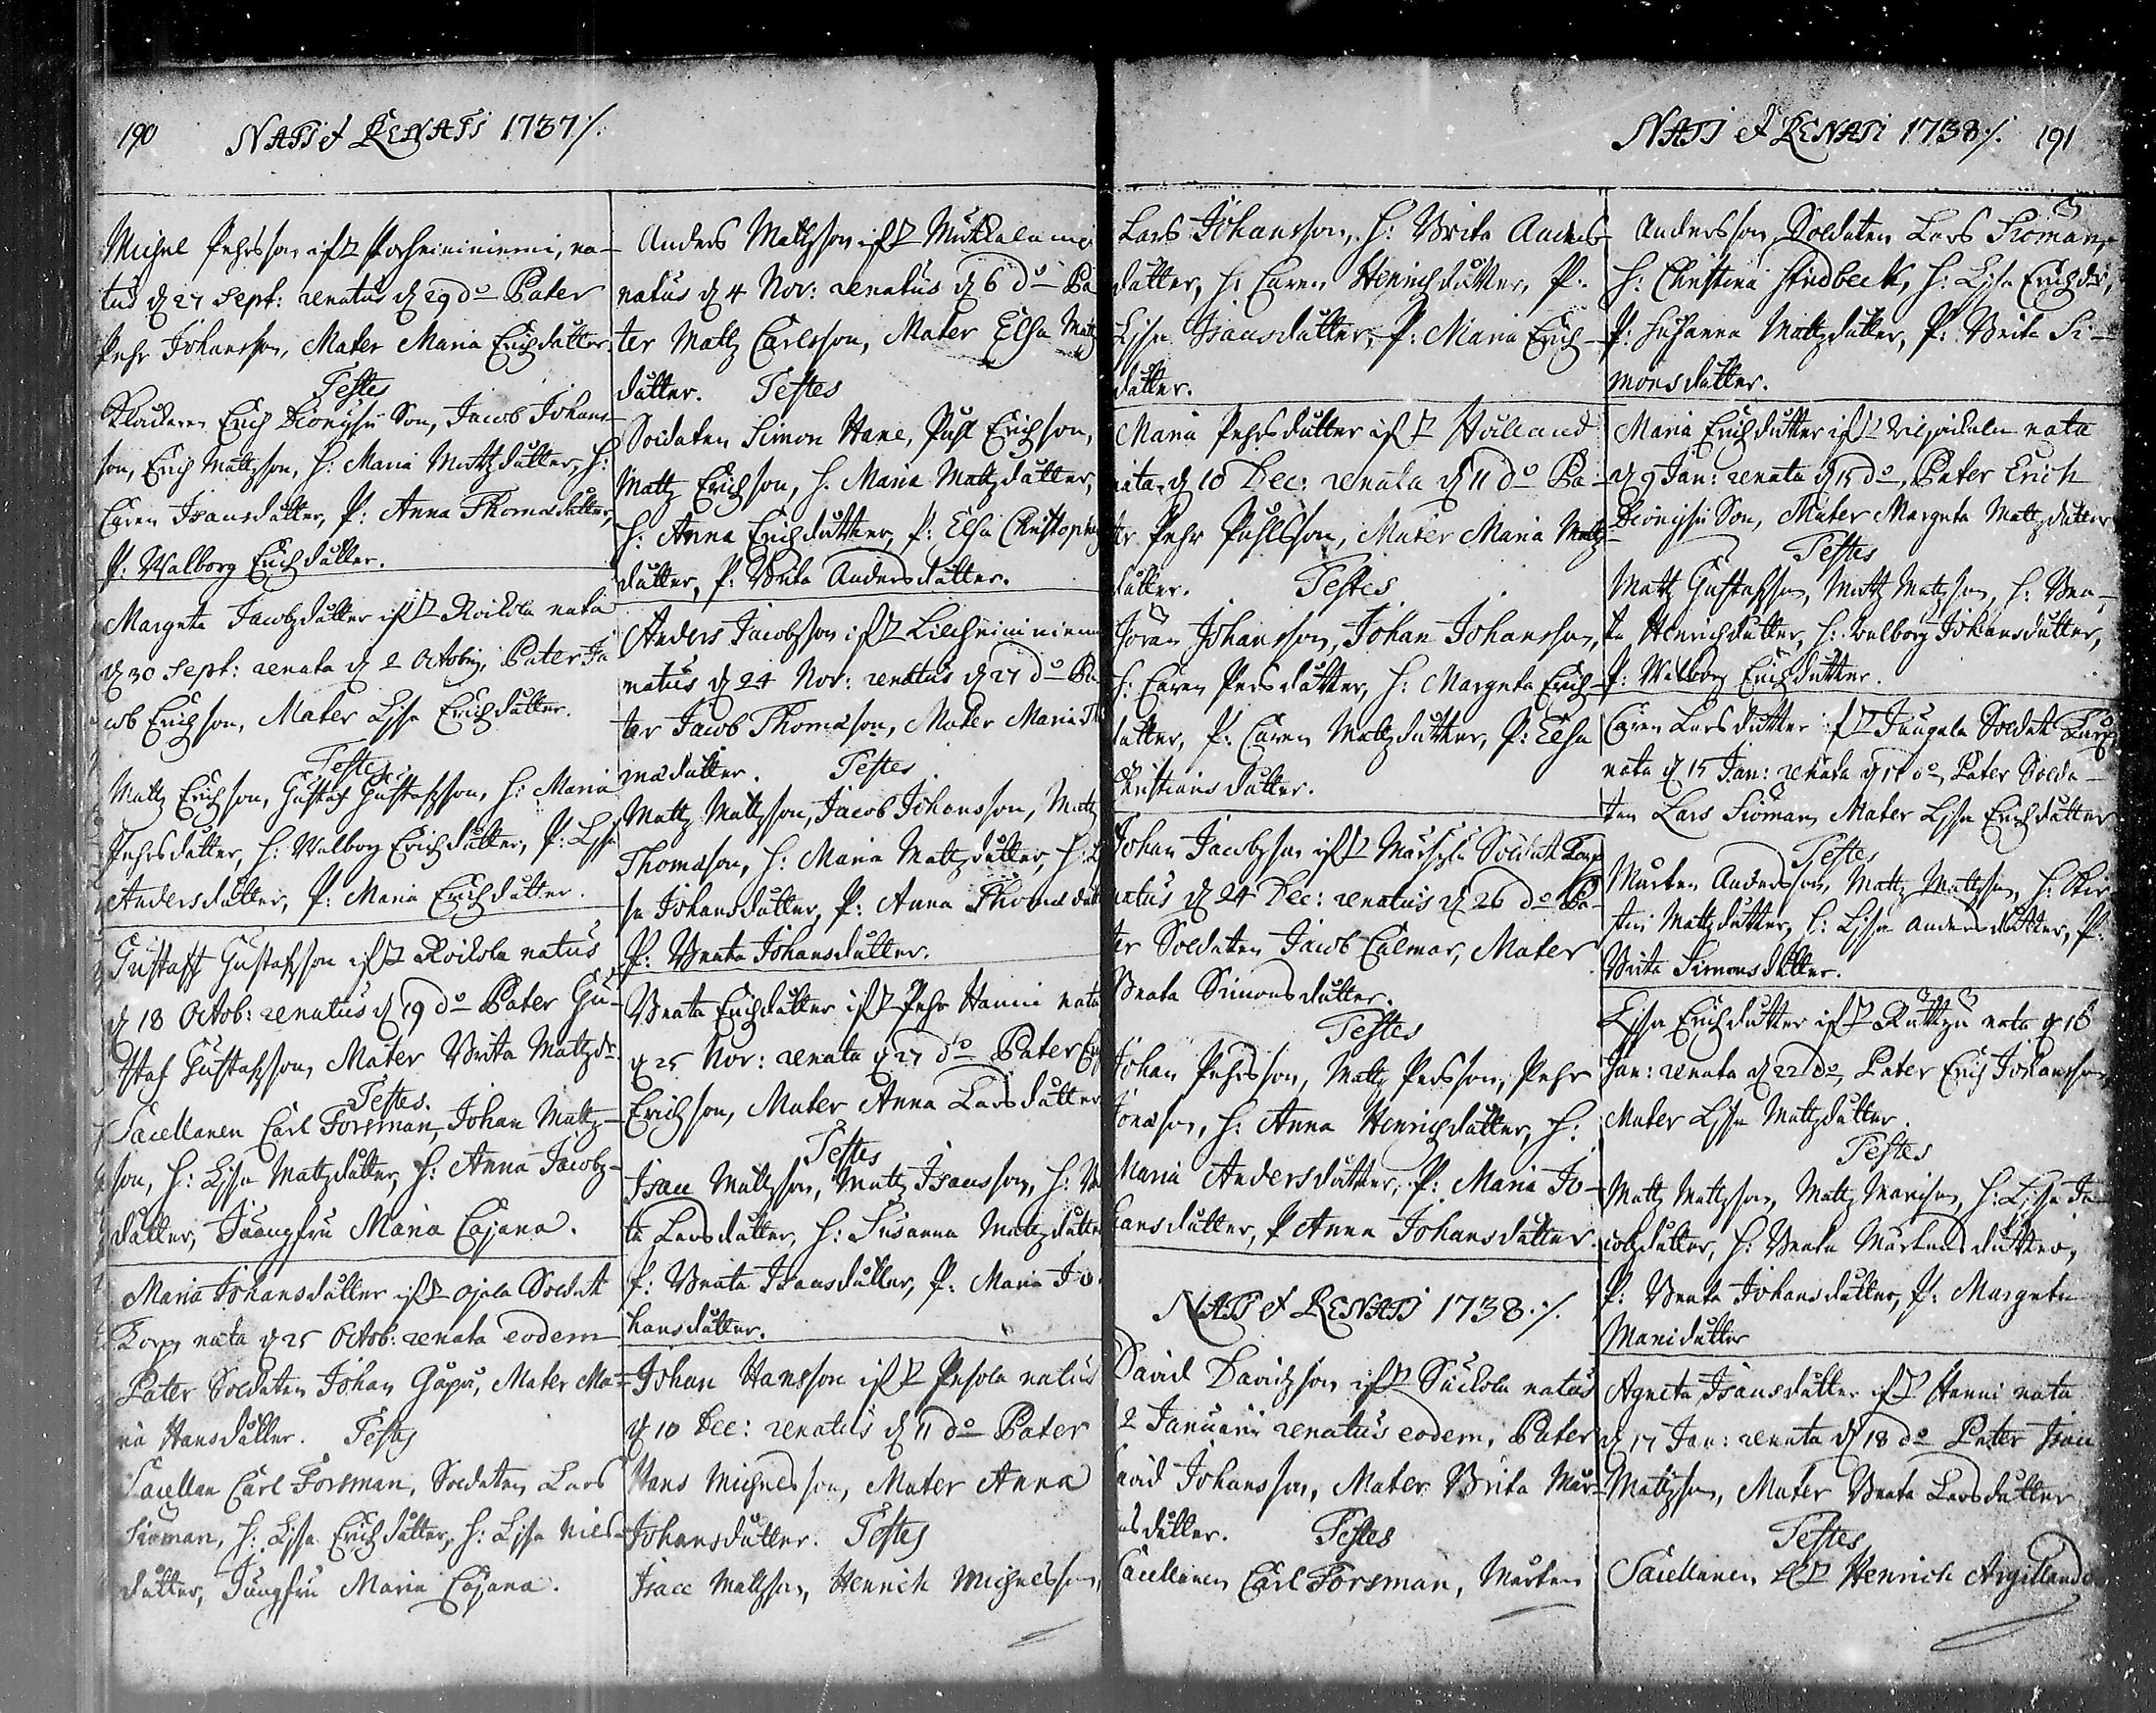 190 NATI et RENATI 1737 ⁒.
Michel Pehrsson ifr. Porheininiemi, na-
tus d. 27 Sept: renatus d. 29 do Pater
Pehr Johansson, Mater Maria Erichdåtter,
Testes
Erich Dionysii Son, Jacob Johans-
son, Erich Mattzson, h: Maria Mattzdåtter, h:
Caren Isansdåtter, P: Anna Thomasdåtter,
P: Walborg Erichdåtter.
Margeta Jacobzdåtter ifr. Roikola nata
d. 30 Sept: renata d. 2 Octobris, Pater Ja
cob Erichson, Mater Lijsa Erichdåtter.
Testes
Mattz Erichson, Gustaf Gustafsson, h: Maria
Pehrsdåtter, h: Walborg Erichdåtter, P: Lijsa
Andersdåtter, P: Maria Erichdåtter.
Gustaff Gustafsson ifr. Roikola natus
d. 18 Octob: renatus d. 19 do Pater Gu-
staf Gustafsson, Mater Brita Mattzdr.
Testes.
Sacellanen Carl Forsman, Johan Mattz-
son, h: Lijsa Mattzdåtter, h: Anna Jacobz-
dåtter, Juangfru Maria Cajana.
Maria Johansdåtter ifr. Ojala Soldat
Torp nata d. 25 Octob: renata eodem
Pater Soldaten Johan Gåpå, Mater Ma-
ria Hansdåtter. Testes
Sacellan Carl Forsman, Soldaten Lars
Sioman, h: Lijsa Erichdåtter, h: Lijsa Nils-
dåtter, Jungfru Maria Cajana.
Anders Mattzson ifr.
natus d. 4 Nov: renatus d. 6 do Pa
ter Mattz Carlsson, Mater Elsa Mattz
dåtter. Testes
Soldaten Simon Hane, Påhl Erichson,
Mattz Erichson, h. Maria Mattzdåtter,
h: Anna Erichdåtter, P: Elsa Christophers
dåtter, P: Brita Andersdåtter.
Anders Jacobsson ifr.
natus d. 24 Nov: renatus d. 27 do Pa
ter Jacob Thomasson, Mater Maria Th
masdåtter. Testes
Mattz Mattzson, Jacob Johansson, Mattz
Thomason, h: Maria Mattzdåtter, h: Li
sa Johansdåtter, P: Anna Thomasdått
P: Beata Johansdåtter.
Beata Erichdåtter ifr. Pehr Hanni nata
d. 25 Nov: renata d. 27 do Pater Erich
Erichson, Mater Anna Larsdåtter
Testes
Isaac Mattzson, Mattz Isansson, h: Be
ta Larsdåtter, h: Susanna Mattzdåtter
P: Beata Isansdåtter, P: Maria Jo
hansdåtter.
Johan Hansson ifr. Pesola natus
d. 10 Dec: renatus d. 11 do Pater
Hans Michelsson, Mater Anna
Johansdåtter. Testes
Isaac Mattson, Henrich Michelsson,
Lars Johansson, h: Brita Anders
dåtter, h: Caren Henrichdåtter, P:
Lijsa Isansdåtter, P: Maria Erich-
dåtter.
Maria Pehrsdåtter ifr. Hålland
nata d. 10 Dec: renata d. 11 do Pa-
ter Pehr Påhlsson, Mater Maria Mattz-
dåtter. Testes
Jöran Johansson, Johan Johansson,
h: Caren Persdåtter, h: Margeta Erich-
dåtter, P: Caren Mattzdåtter, P: Elsa
Christiansdåtter.
Johan Jacobsson ifr. Soldat Torp
natus d. 24 Dec: renatus d. 26 do Pa-
ter Soldaten Jacob Calmar, Mater
Beata Simonsdåtter.
Testes
Johan Pehrsson, Mattz Persson, Pehr
Jonason, h: Anna Henrichdåtter, h:
Maria Andersdåtter, P: Maria Jo-
hansdåtter, P Anna Johansdåtter.
NATI et RENATI 1738 ⁒.
David Davidsson ifr. natus
2 Januarii renatus eodem, Pater
David Johansson, Mater Brita Mår-
ensdåtter. Testes
Sacellanen Carl Forsman, Mårten
NATI et RENATI 1738 ⁒. 191
Andersson, Soldaten Lars Sioman,
h: Christina Hindbeck, h: Lijsa Erichdr,
P: Susanna Mattzdåtter, P: Brita Si-
monsdåtter.
Maria Erichdåtter ifr. nata
d. 9 Jan: renata d. 15 do, Pater Erich
Dionysii Son, Mater Margeta Mattzdåtter
Testes
Mattz Gustafsson, Mattz Matzson, h: Bea-
ta Henrichdåtter, h: Walborg Johansdåtter,
P: Walborg Erichdåtter.
Caren Larsdåtter ifr. Jaugala Soldat Torp
nata d. 15 Jan: renata d. 17 do, Pater Solda-
ten Lars Sioman, Mater Lijsa Erichdåtter
Testes
Mårten Andersson, Mattz Mattzson, h: Kir-
stin Mattzdåtter, h: Lijsa Andersdåtter, P:
Brita Simonsdåtter.
Lijsa Erichdåtter ifr. nata d. 16
Jan: renata d. 22 do, Pater Erich Johansson,
Mater Lijsa Mattzdåtter.
Testes
Mattz Mattzson, Mattz h: Lijsa Ja-
cobzdåtter, h: Beata Mårtensdåtter,
P: Beata Johansdåtter, P: Margeta
Agneta Isansdåtter ifr. Hanni nata
d. 17 Jan: renata d. 18 do Pater Isaac
Mattzson, Mater Beata Larsdåtter
Testes
Sacellanen Hr. Henrich Argillander